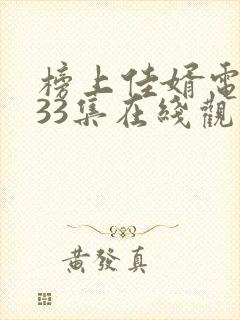 榜上佳婿電
33集在綫觀
黃發真